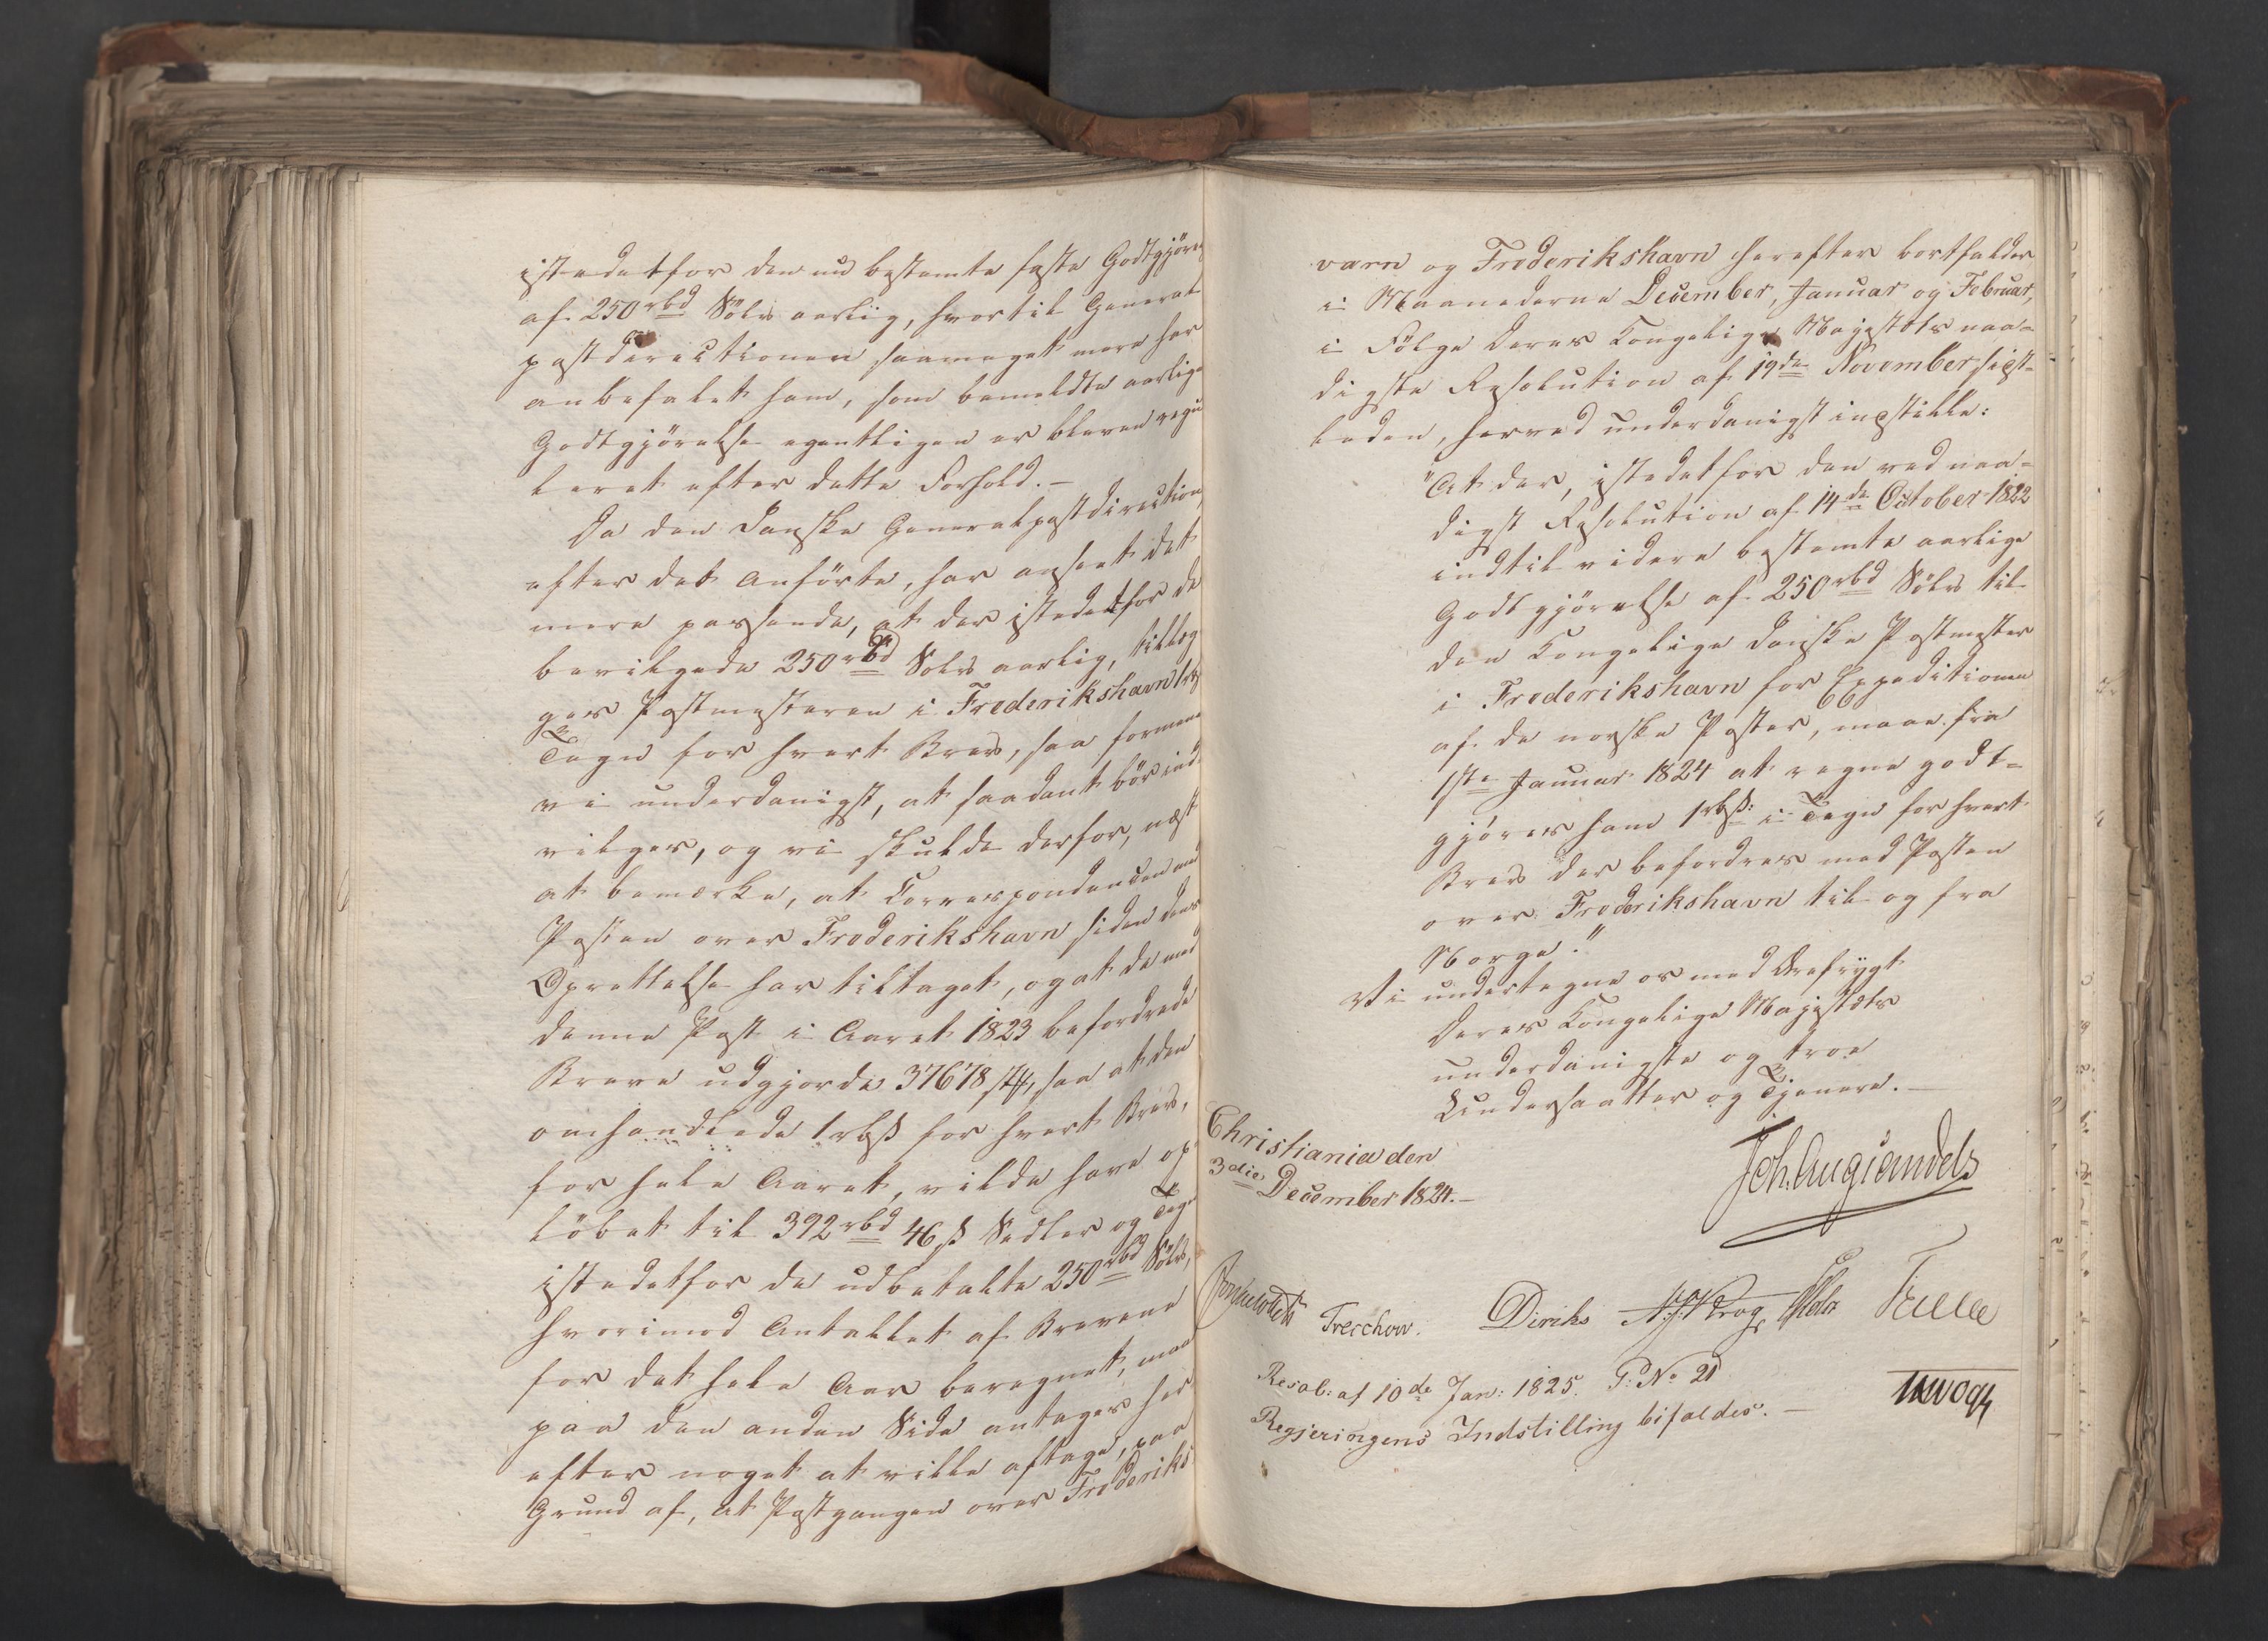 istedetfor den nu bestemte faste Godtgjörelse
af 250 rbd Sölv aarlig, hvortil General
postdirectionen saameget mere har
anbefalet ham, som bemeldte aarlige
Godtgjörelse egentligen er bleven regu
leret efter dette Forhold.-
Da den Danske Generalpostdirection,
efter det Anförte, har anseet det
mere passende, at der istedetfor de
bevilgede 250 rbd Sölv aarlig, tillæg
ges Postmesteren i Frederikshavn 1 rbß
Tegn for hvert Brev, saa formene
vi underdanigst, at saadant bör ind
vilges, og vi skulde derfor, næst
at bemærke, at Correspondencen med
Posten over Frederikshavn siden dens
Oprettelse har tiltaget, og at de med
denne Post i Aaret 1823 befordrede
Breve udgjorde 37678 stk, saa at den
omhandlede 1 rbß for hvert Brev,
for hele Aaret, vilde have op
löbet til 392 rbd 46 ß Sedler og Tegn
istedetfor de udbetalte 250 rbd Sölv,
hvorimod Antallet af Brevene
for det hele Aar beregnet, maa
paa den anden Side antages her
efter noget at ville aftage, paa
Grund af, at Postgangen over Frederiks
værn og Frederikshavn herefter bortfalder
i Maanederne December, Januar og Februar,
i Fölge Deres Kongelige Majestæts naa=
digste Resolution af 19de November sidst=
leden, herved underdanigst indstille:
"At der, istedetfor den ved naa=
digst Resolution af 14de October 1822
indtil videre bestemte aarlige
Godtgjörelse af 250 rbd Sölv til
den Kongelige Danske Postmester
i Frederikshavn for Expeditionen
af de norske Poster, maae fra
1ste Januar 1824 at regne godt=
gjöres ham 1 rbß: i Tegn for hvert
Brev der befordres med Posten
over Frederikshavn til og fra
Norge."
Vi undertegne os med Ærefrygt
Deres Kongelige Majestæts
underdanigste og troe
Undersaatter og Tjenere.-
Christiania den
3die December 1824.-
Joh. Aug Sandels
Sommerfeldt Treschow. Diriks A.J. Krog Holst
Resol: af 10de Jan: 1825. P: No 21
Regjeringens Indstilling bifaldes.-